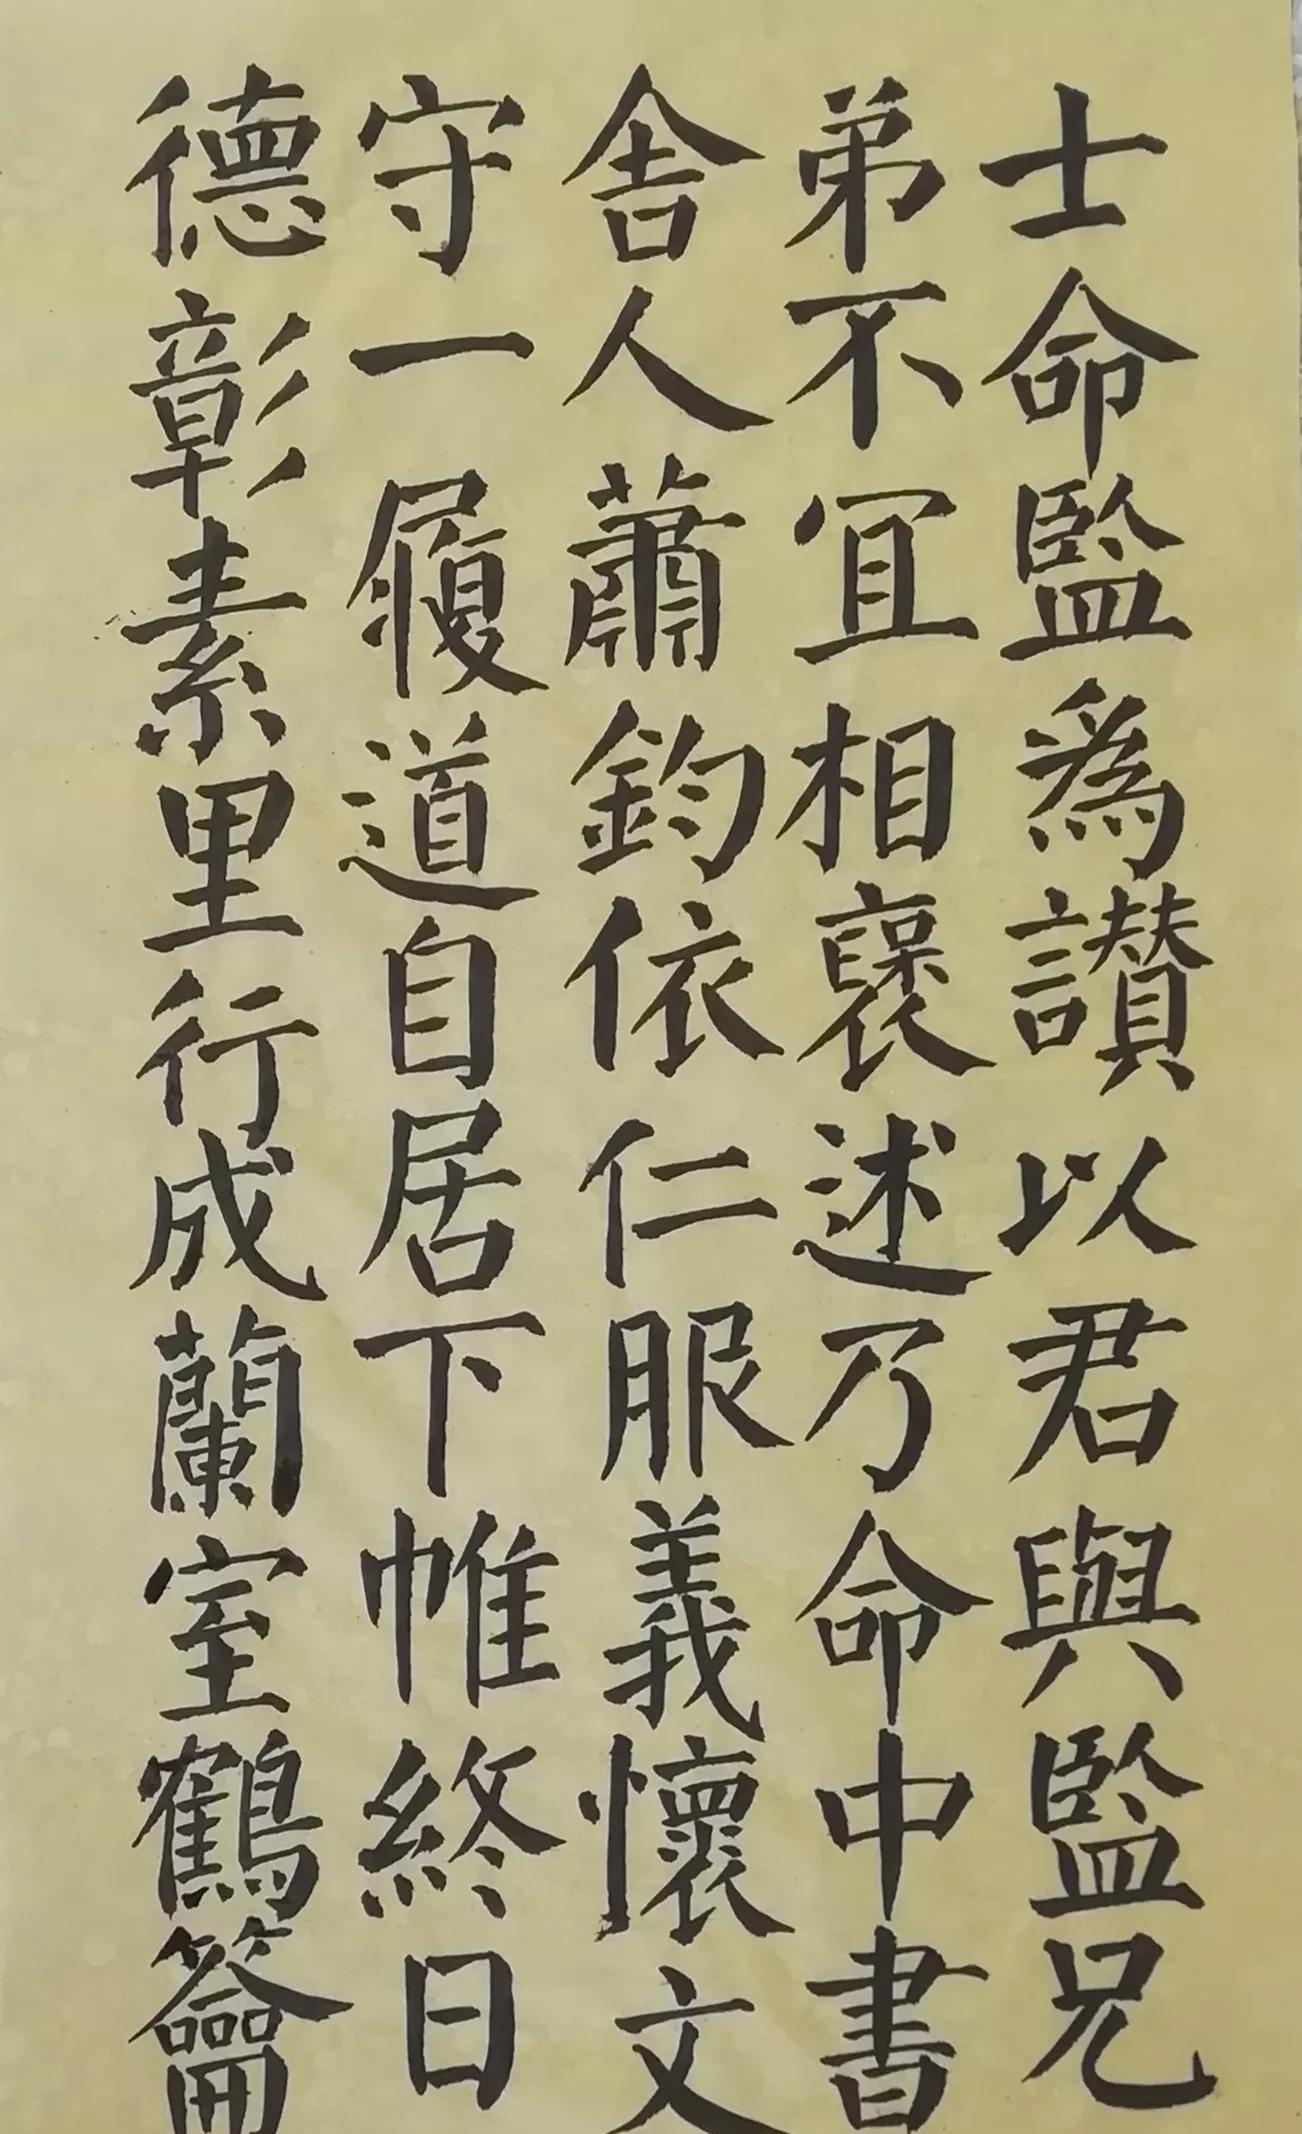 士命監為讃以君與監兄
弟不冝相襃述乃命中書
舎人蕭鈞依仁服義懷文
守一履道自居下帷終日
德彰素里行成蘭室鶴籥